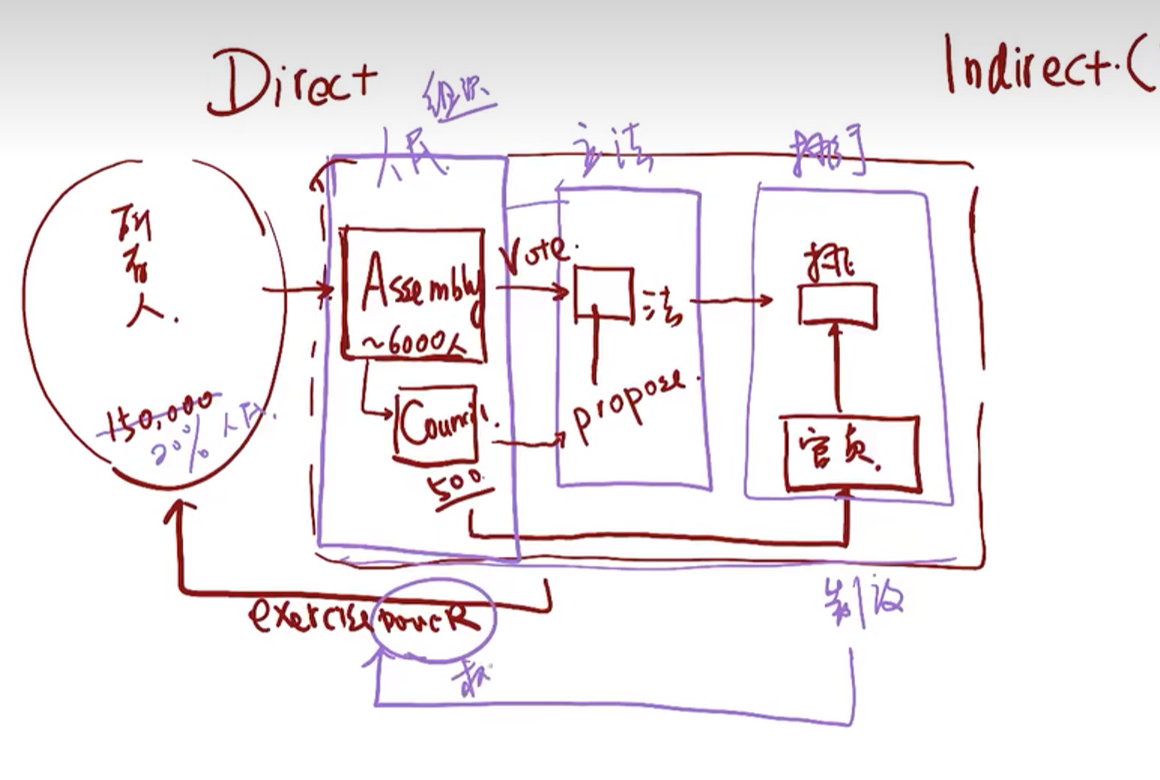 Direct
Indirect.(
组织
人民
立法
执行
所有人.
150,000
20% 人民.
Assembly
~6000人
Vote.
法
Council.
500
propose.
执行
官员.
exercise power
权
制设